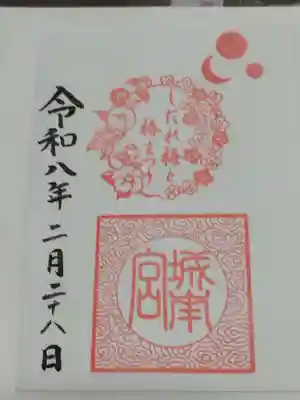 しだれ梅と
椿まつり
城南宮
令和八年二月二十八日